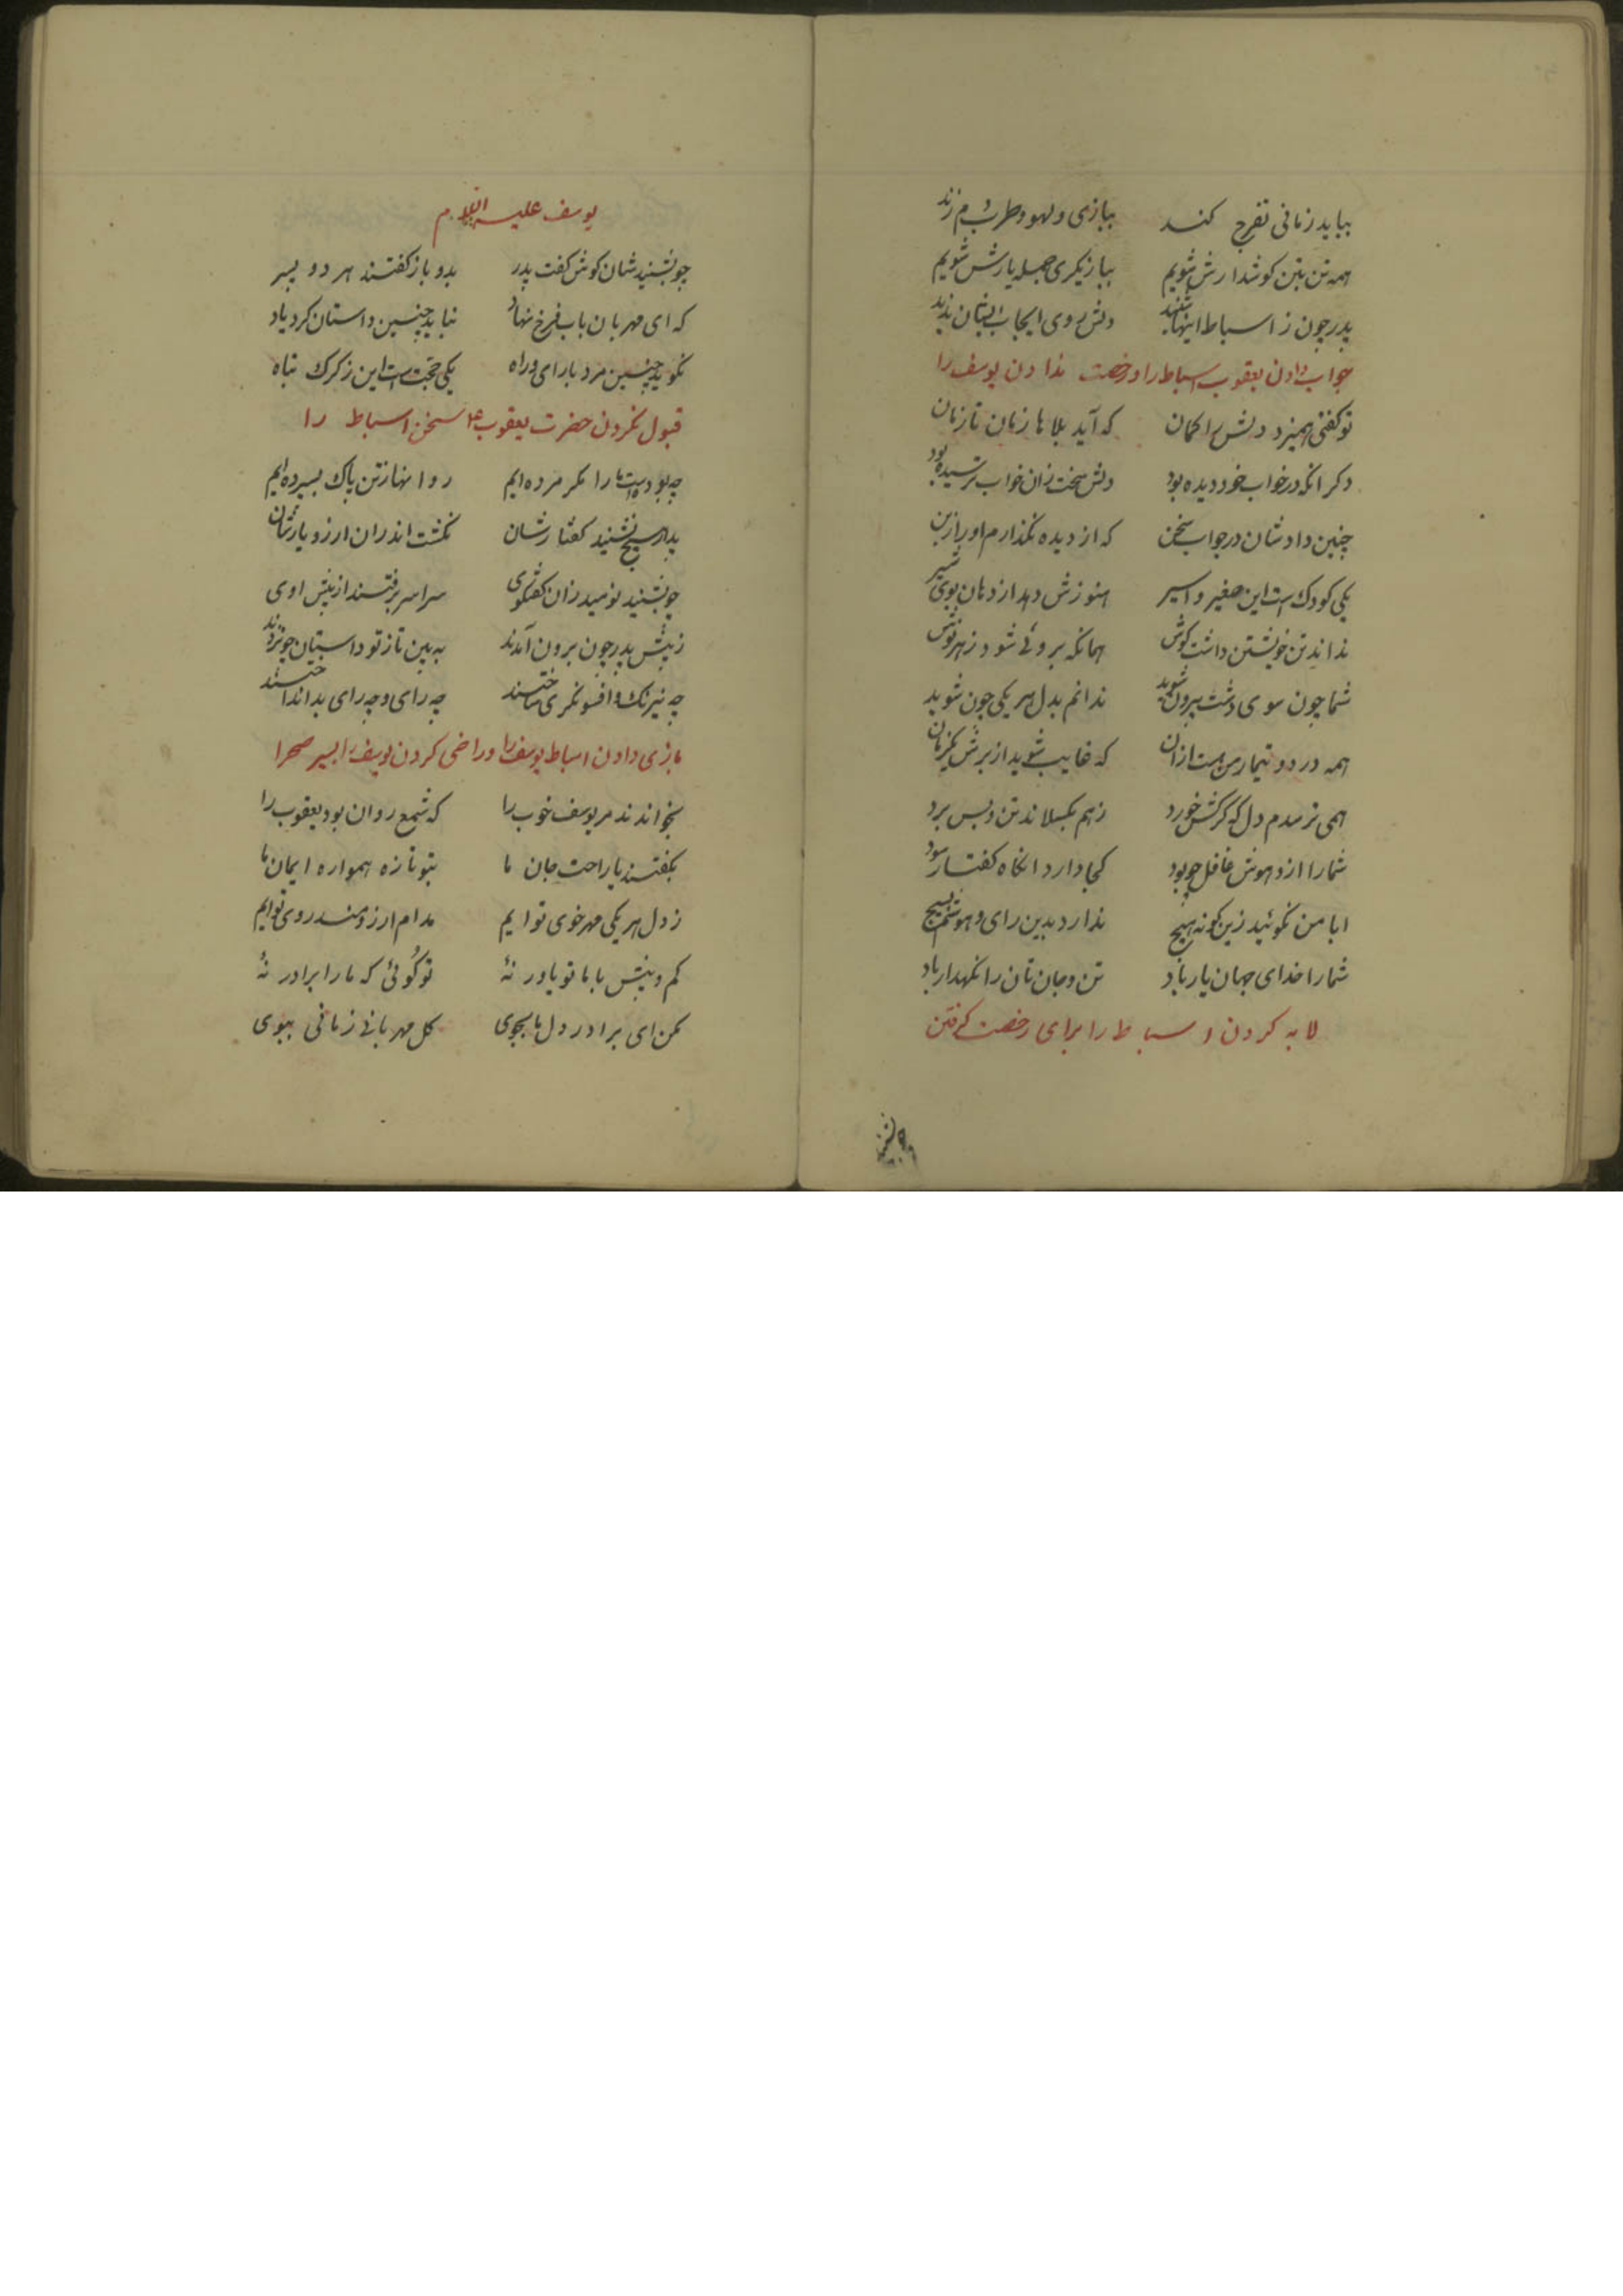 بیاید زمانی تفرج کند ببازی و لهو و طرب دم زند
همه تن بتن کوشدارش شویم ببازیگری جمله یارش شویم
پدر چون ز اسباط اینها شنید دلش روی ایجاب ایشان ندید
جواب دادن یعقوب اسباط را و رخصت ندادن یوسف را
تو کفتی همیزد دلش را کمان که آید بلاها زمان تا زمان
دکر انکه در خواب خود دیده بود دلش سخت زان خواب ترسیده بود
چنین داد شان در جواب سخن که از دیده نکذارم او را ز بن
یکی کودک است این صغیر و اسیر هنوزش دهد از دهان بوی شیر
نداند تن خویشتن داشت کوش همانکه بروئی شود زهر نوش
شما چون سوی دشت بیرون شوید ندانم بدل هر یکی چون شوید
همه درد و تیمار من هست ازان که غایب شوید از برش یکزمان
همی ترسدم دل که کرکش خورد ز هم بکسلاند تن و پس برد
شما را ازو هوش غافل چو بود کجا دارد انکاه کفتار سود
ابا من نکوئید زین کونه هیچ ندارد بدین رای و هوشم بسیج
شما را خدای جهان یار باد تن و جان تان را نکهدار باد
لابه کردن اسباط را برای رخصت کرفتن
یوسف علیه السلام
چو بشنید شان کوش کفت پدر بدو باز کفتند هر دو پسر
که ای مهربان باب فرخ نهاد نباید چنین داستان کرد یاد
نکوید چنین مرد با رای و راه یکی حجت است این ز کرک تباه
قبول نکردن حضرت یعقوب ع سخن اسباط را
چه بود است ما را مکر مرده ایم روانها ز تن پاک بسپرده ایم
پدر هیچ نشنید کفتارشان نکشت اندران ارزو یارشان
چو بشنید نومید زان کفتکوی سراسر برفتند از پیش اوی
ز پیش پدر چون برون آمدند به بین تا ز نو داستان چون زدند
چه نیرنک و افسونکری ساختند چه رای و چه رای بد انداختند
بازی دادن اسباط یوسف را و راضی کردن یوسف را بسیر صحرا
بخواندند مر یوسف خوب را که شمع روان بود یعقوب را
بکفتند یا راحت جان ما بتو تازه همواره ایمان ما
ز دل هر یکی مهرخوی تو ایم مدام ارزومند روی توایم
کم و بیش با ما تو یاور نهٔ تو کوئی که ما را برادر نهٔ
مکن ای برادر دل ما بجوی کل مهربانی زمانی ببوی